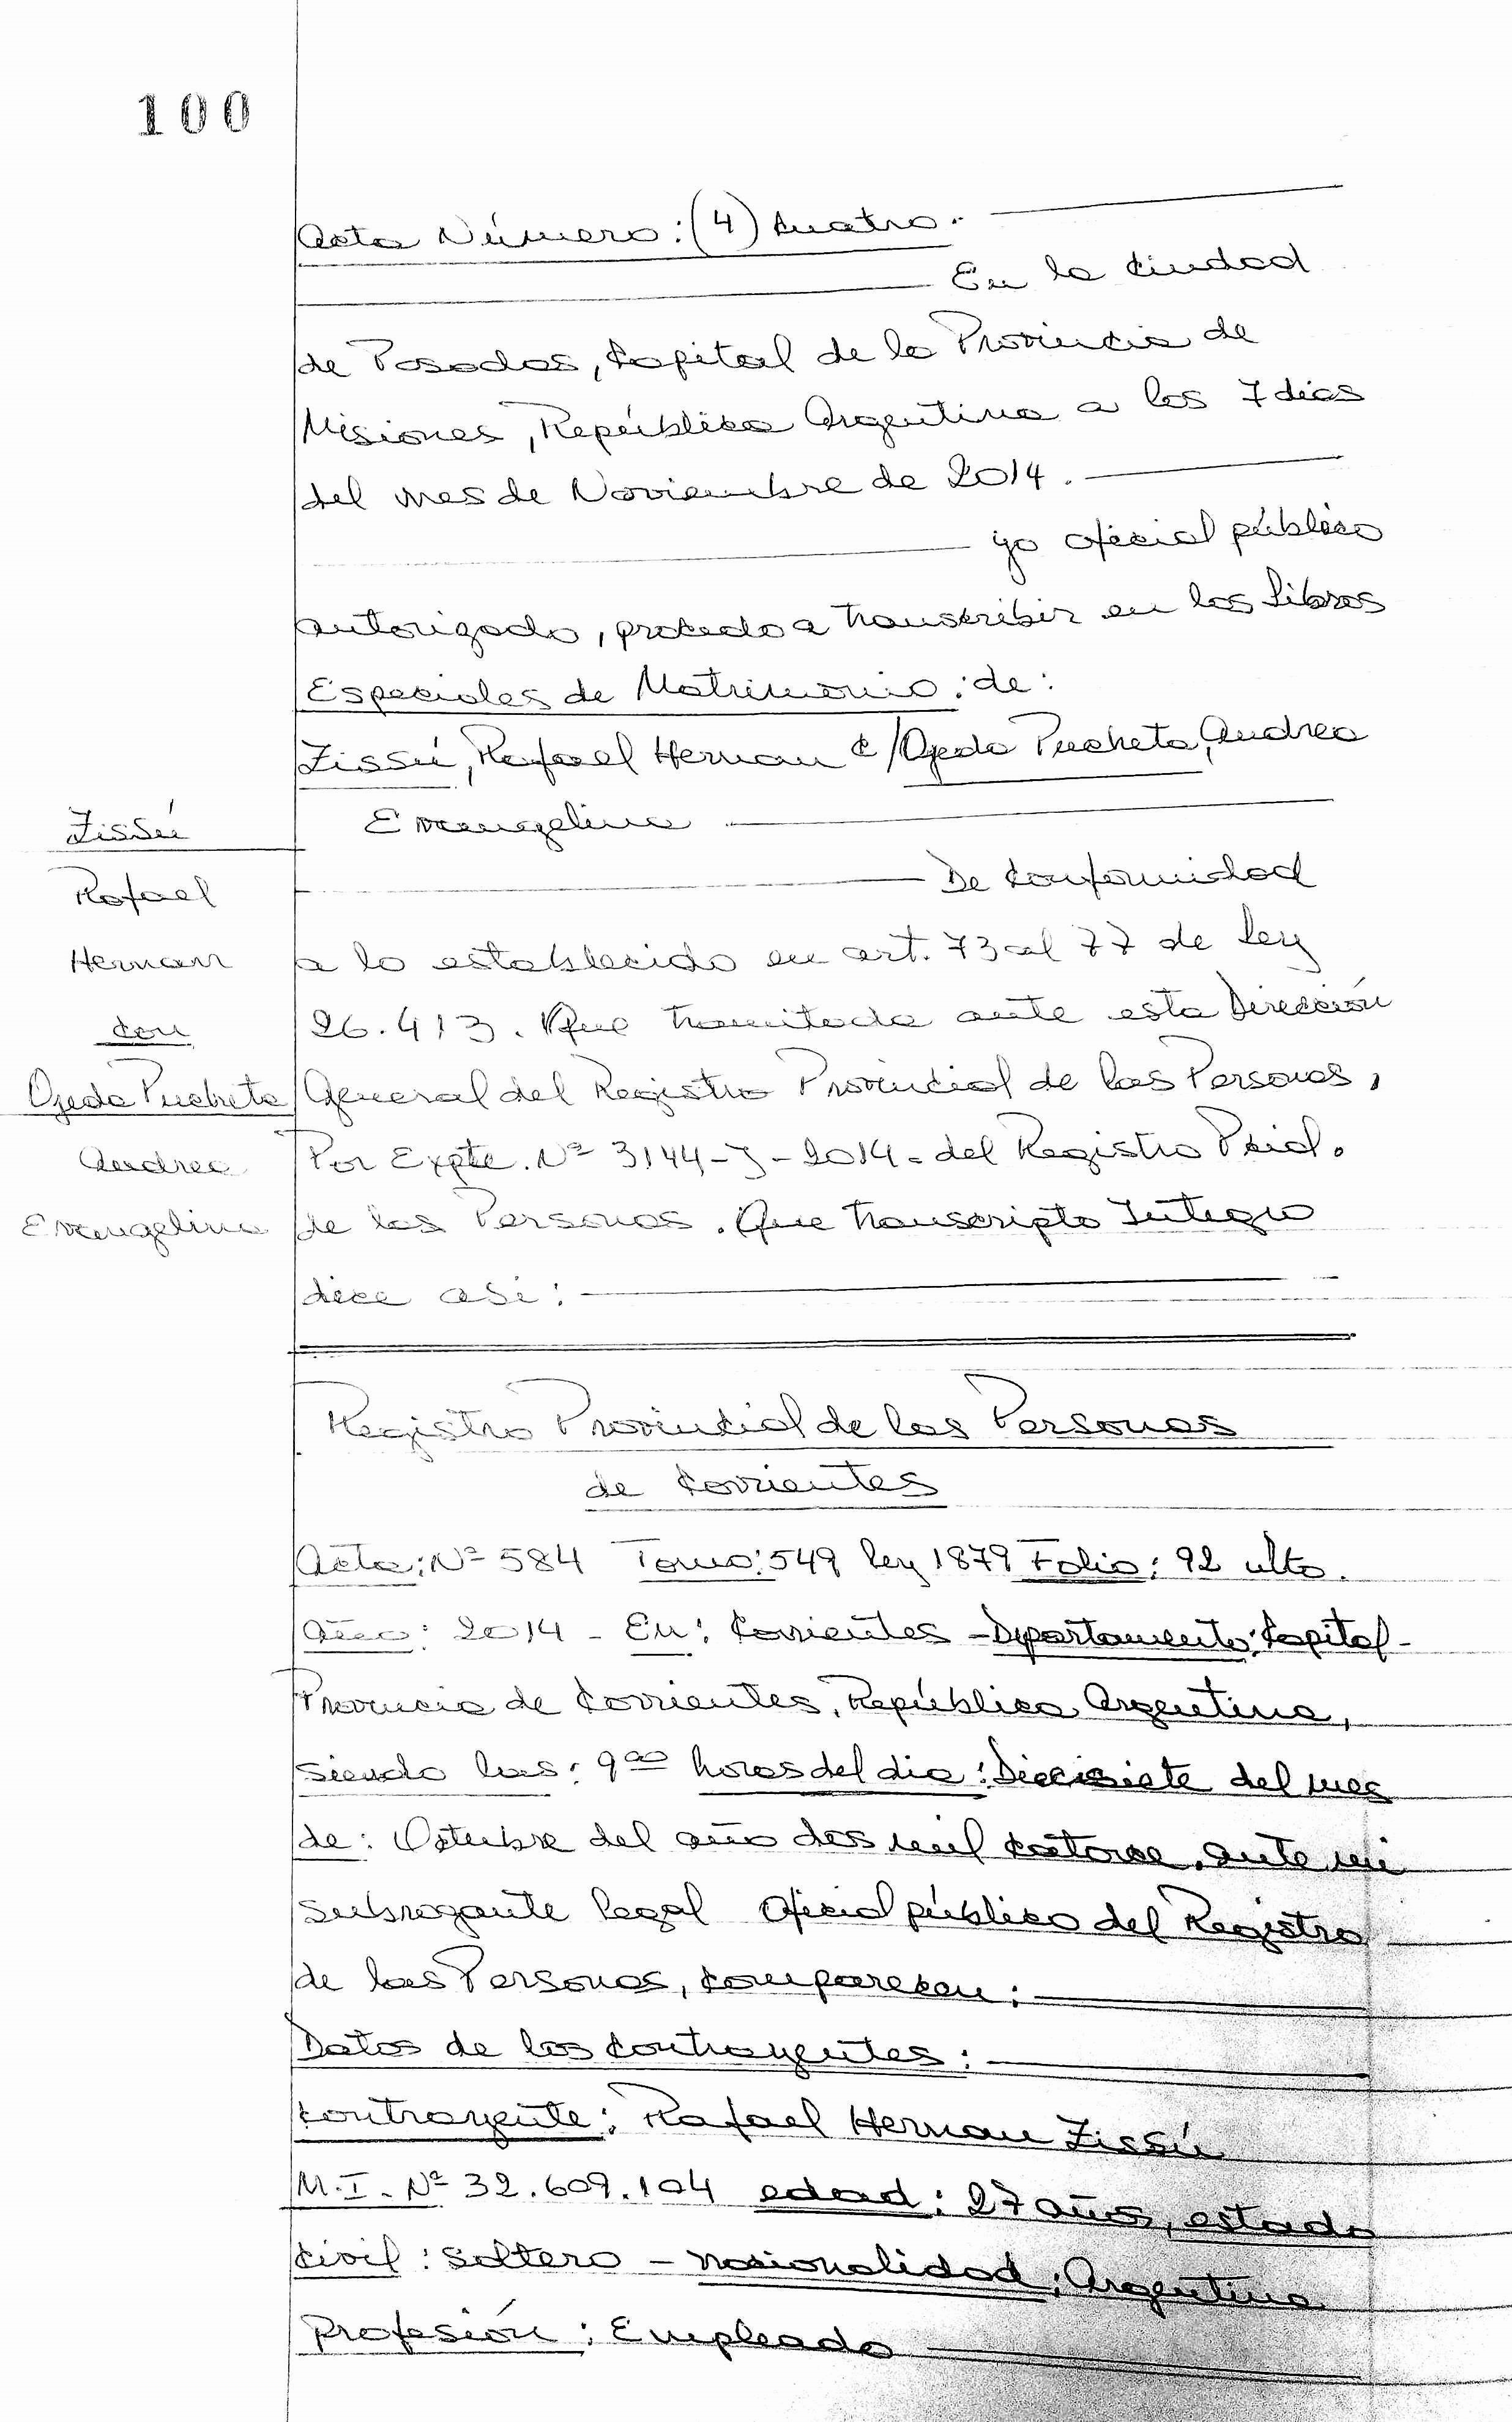 100
Acta Número: (4) Cuatro.
En la Ciudad
de Posadas, Capital de la Provincia de
Misiones, República Argentina a los 7 días
del mes de Noviembre de 2014.
yo oficial público
autorizado, procedo a transcribir en los Libros
Especiales de Matrimonio: de:
Zissú, Rafael Hernan c/ Ojeda Pucheta, Andrea
Evangelina
Zissú
Rafael
Hernan
con
Ojeda Pucheta
Andrea
Evangelina
De Conformidad
a lo establecido en art. 73 al 77 de Ley
26.413. Que tramitada ante esta Dirección
General del Registro Provincial de las Personas,
Por Expte. Nº 3144-J-2014- del Registro Pcial.
de las Personas. Que transcripto Integro
dice asi:
Registro Provincial de las Personas
de Corrientes
Acta: Nº 584 Tomo: 549 Ley 1879 Folio: 92 vlto.
Año: 2014 - En: Corrientes - Departamento: Capital -
Provincia de Corrientes, República Argentina,
siendo las: 9⁰⁰ horas del dia: Diecisiete del mes
de: Octubre del año dos mil catorce, ante mi
Subrogante legal Oficial público del Registro
de las Personas, comparecen:
Datos de los Contrayentes:
Contrayente: Rafael Hernan Zissú
M.I. Nº 32.609.104 edad: 27 años, estado
Civil: Soltero - nacionalidad: Argentina
Profesión: Empleado